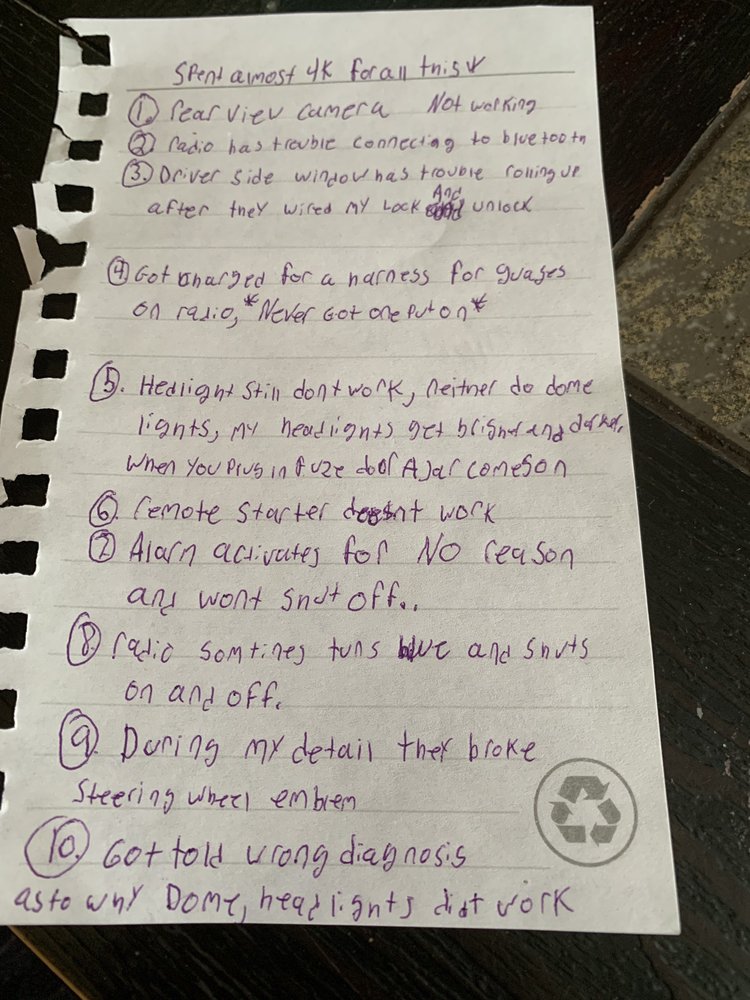 Spent almost 4K for all this ↓
① rear view camera Not working
② radio has trouble connecting to bluetooth
③ Driver side window has trouble rolling up
after they wired my Lock And unlock
④ Got charged for a harness for guages
on radio, *Never Got one put on*
⑤. Hedlight still dont work, neither do dome
lights, my headlights get bright and darker,
when you plug in fuze door AJar comes on
⑥. remote starter doesnt work
⑦ Alarm activates for NO reason
and wont shut off..
⑧ radio somtimes turns blue and shuts
on and off.
⑨. During my detail they broke
steering wheel emblem
⑩. Got told wrong diagnosis
as to why Dome, headlights didt work